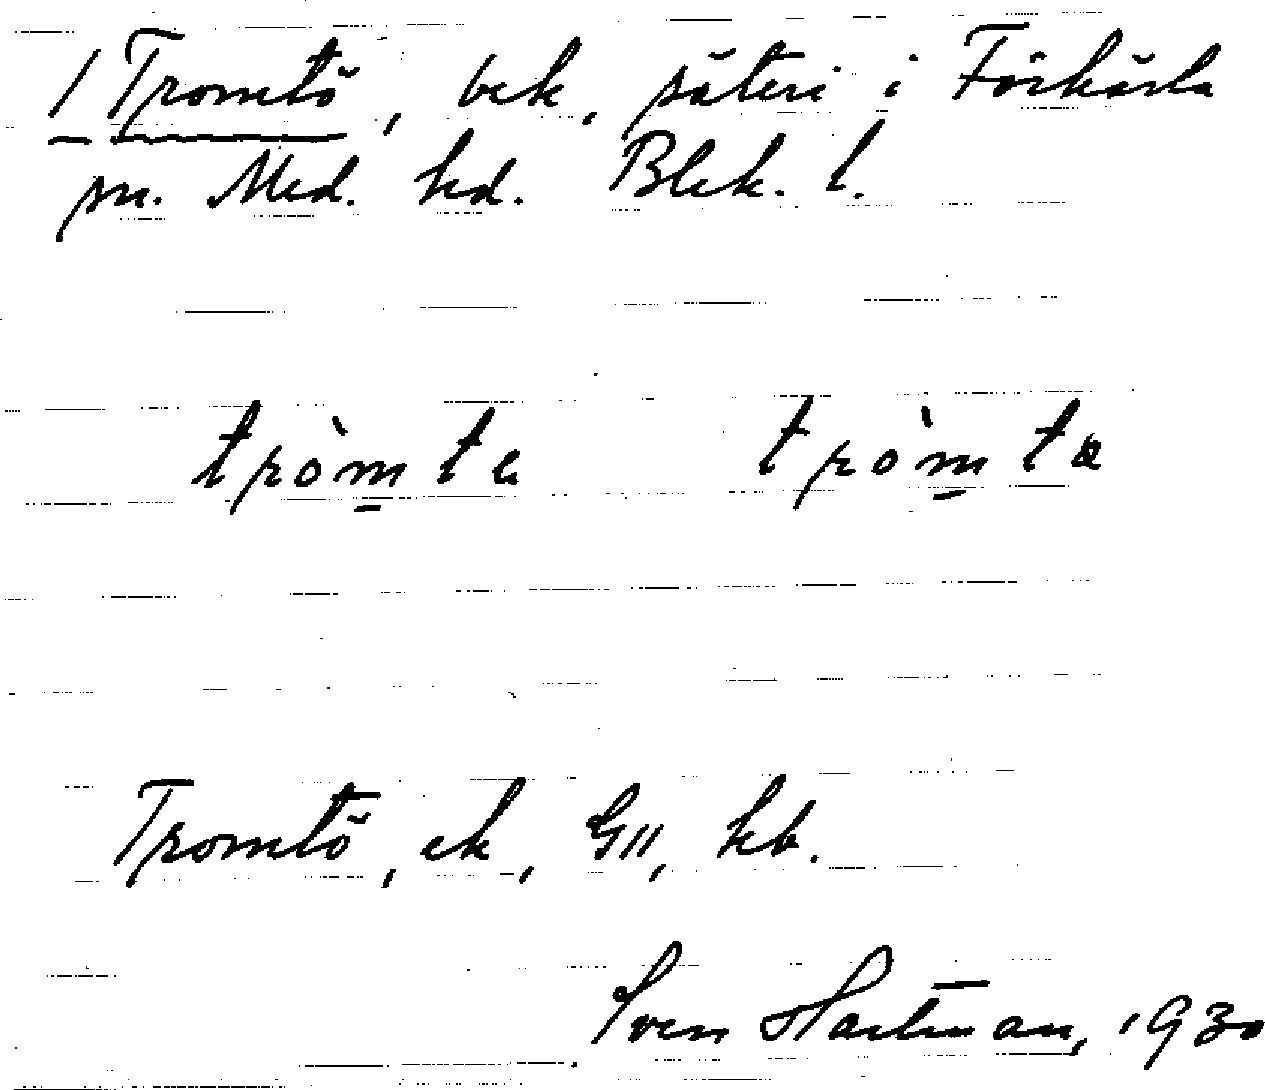 1 Tromtö, bek, säteri i Förkärla
sn. Med. hd. Blek. l.
tròm̱te tròm̱tə
Tromtö, ek, GII, kb.
Sven Hartman, 1930